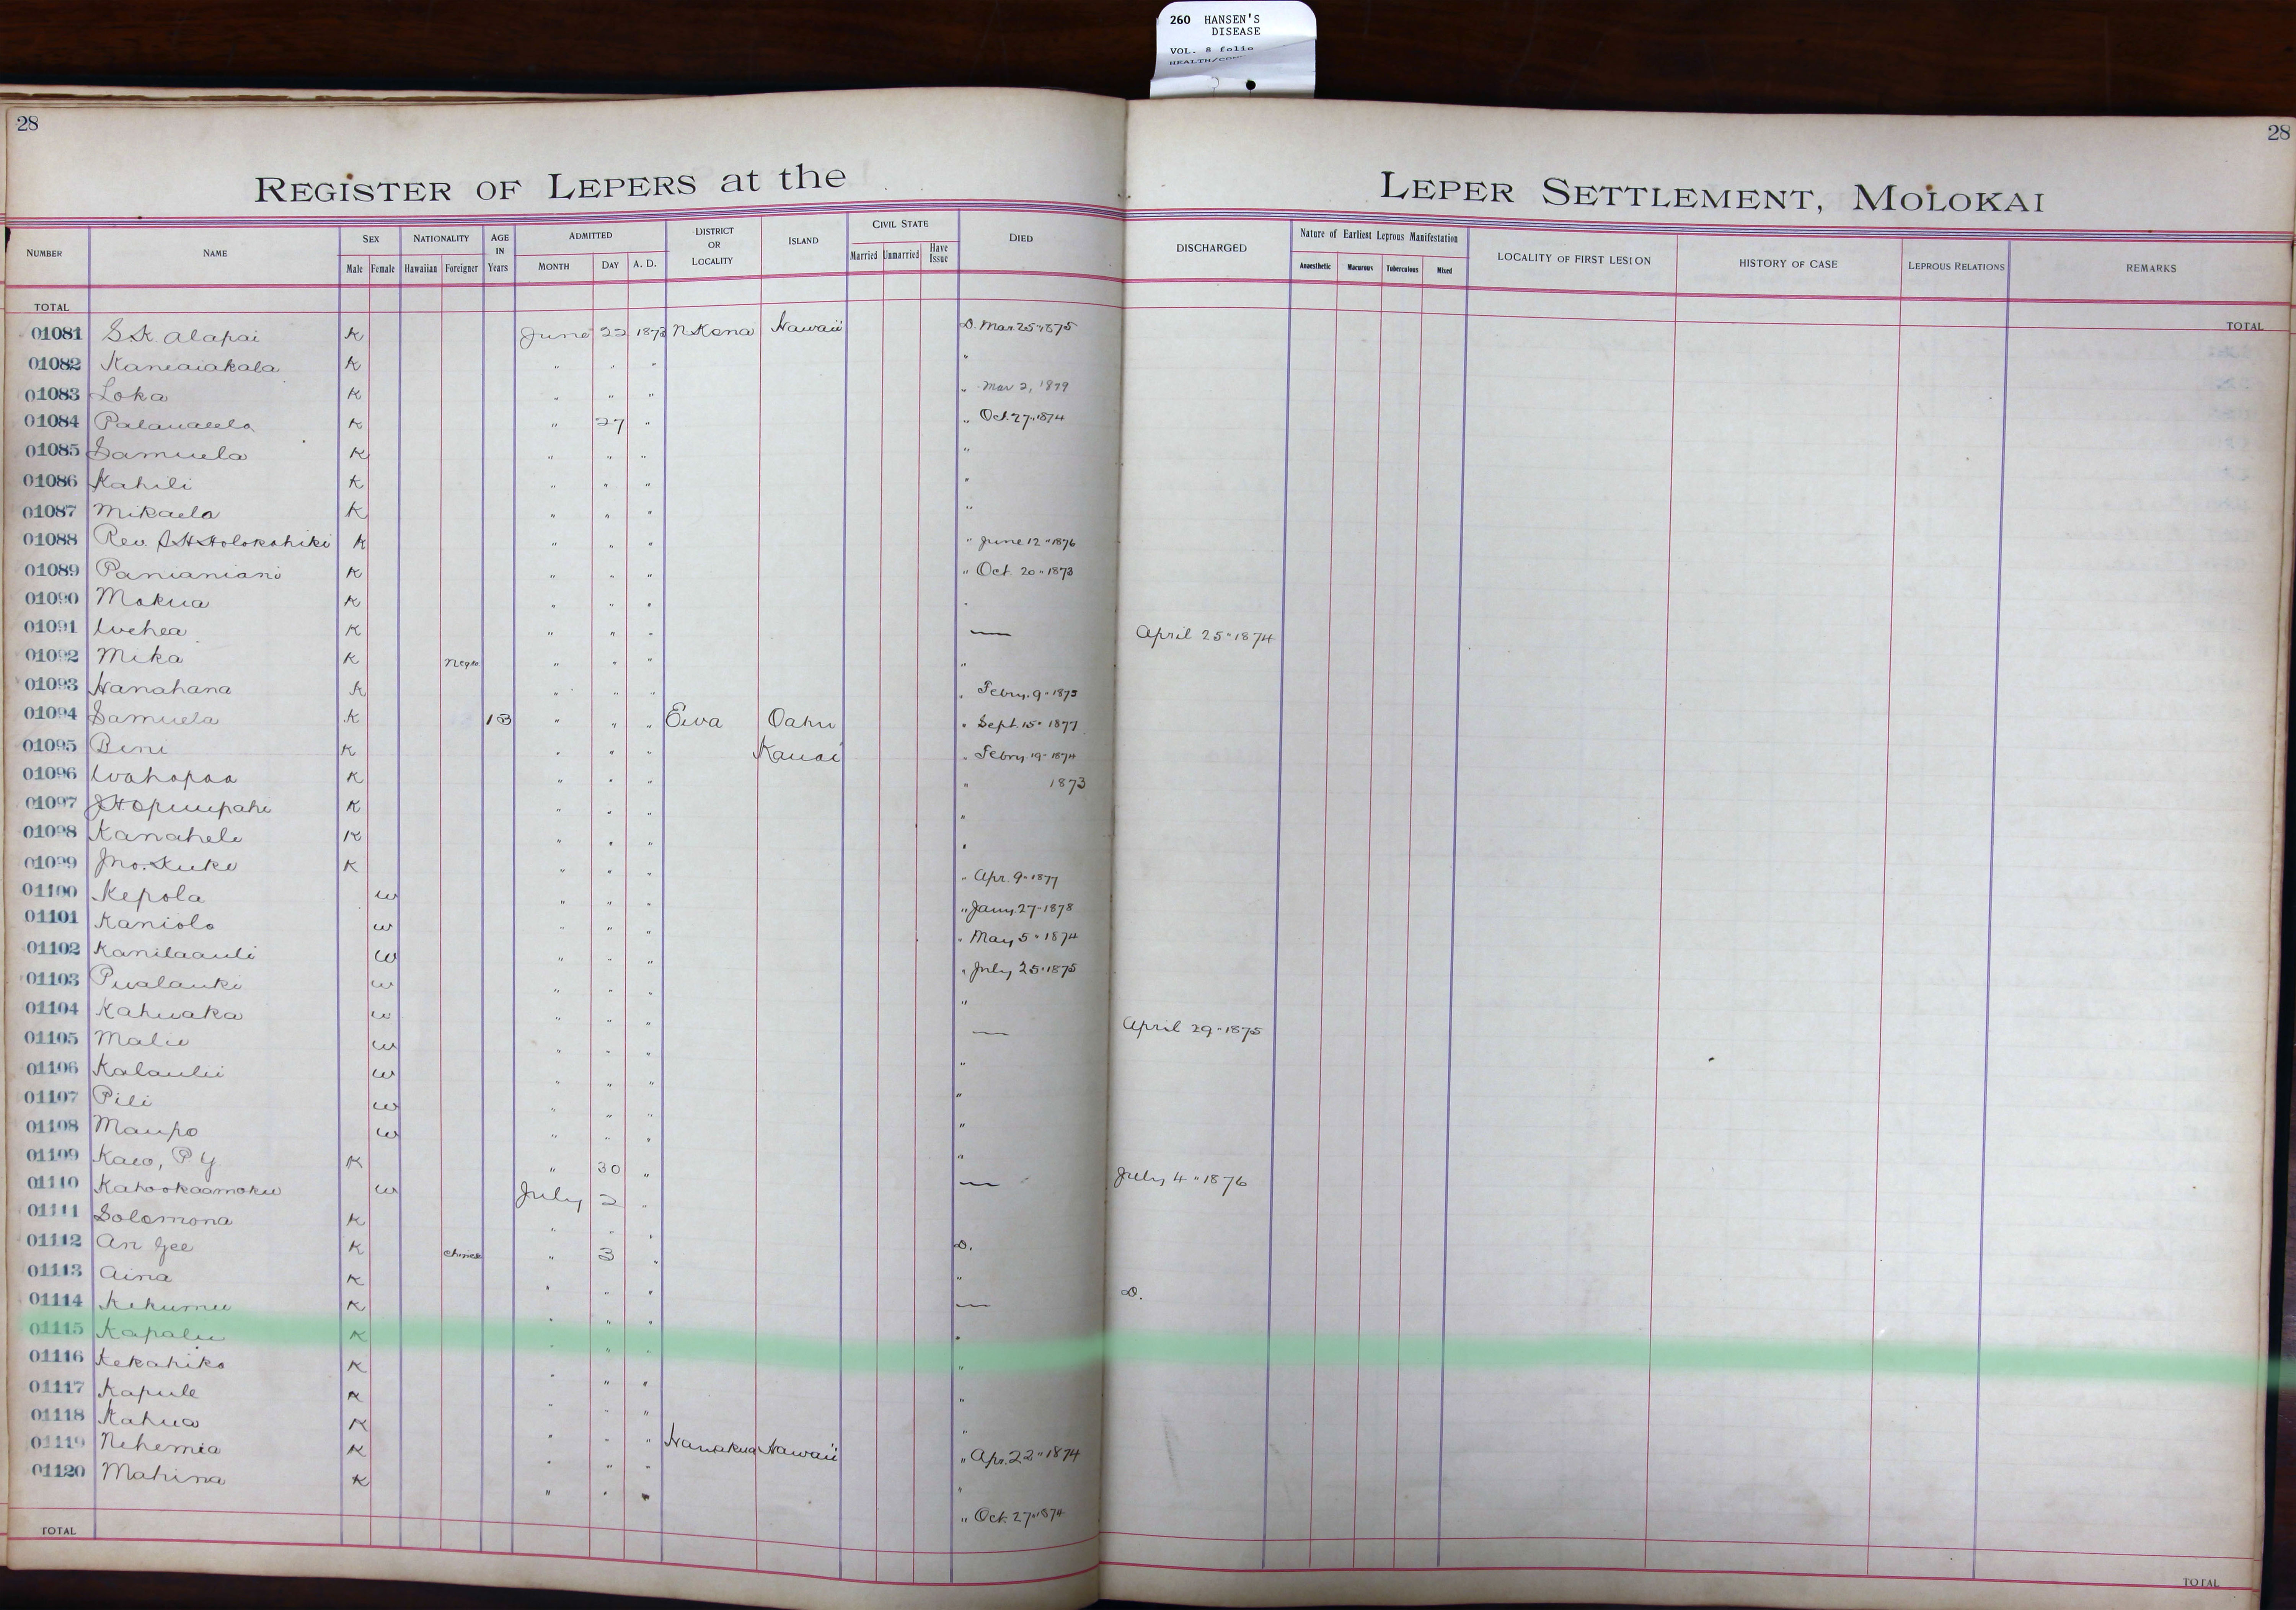 260 HANSEN'S
DISEASE
VOL. 8 folio
28
28
REGISTER OF LEPERS at the LEPER SETTLEMENT, MOLOKAI
NUMBER NAME SEX NATIONALITY AGE IN Years ADMITTED DISTRICT OR LOCALITY ISLAND CIVIL STATE DIED DISCHARGED Nature of Earliest Leprous Manifestation LOCALITY OF FIRST LESION HISTORY OF CASE LEPROUS RELATIONS REMARKS
Male Female Hawaiian Foreigner MONTH DAY A. D. Married Unmarried Have Issue Anaesthetic Macurous Tuberculous Mixed
TOTAL TOTAL
01081 S.K. Alapai K June 22 1873 N Kona Hawaii D. Mar. 25 " 1875
01082 Kaneaiakala K " " " "
01083 Loka K " " " " Mar 2, 1879
01084 K " 27 " " Oct. 27 " 1874
01085 Samuela K " " " "
01086 Kahili K " " " "
01087 Mikaela K " " " "
01088 Rev. S H Holokahiki K " " " " June 12 " 1876
01089 Panianiani K " " " " Oct. 20 " 1873
01090 Mokua K " " " "
01091 Wehea K " " " — April 25 " 1874
01092 Mika K Negro " " " "
01093 Hanahana K " " " " Febry. 9 "
01094 Samuela K 13 " " " Ewa Oahu " Sept. 15 " 1877
01095 Beni K " " " Kauai " Febry 19 " 1874
01096 Wahapaa K " " " " 1873
01097 J.H. Opiuupahi K " " " "
01098 Kanahele K " " " "
01099 Jno. Kuke K " " " " Apr. 9 " 1877
01100 Kepola w " " " " Jany. 27 " 1878
01101 Kaniolo w " " " " May 5 " 1874
01102 Kanilaauli w " " " " July 25 " 1875
01103 Pualauki w " " " "
01104 Kahuaka w " " " — April 29 " 1875
01105 Malie w " " " "
01106 Kalaulii w " " " "
01107 Pili w " " " "
01108 Maupo w " " " "
01109 Kaeo, P Y K " 30 " — July 4 " 1876
01110 Kahookaamoku w July 2 "
01111 Solomona K " " "
01112 An Gee K Chinese " 3 " D.
01113 Aina K " " " "
01114 Kekumu K " " " — D.
01115 Kapalu K " " " "
01116 Kekahiko K " " " "
01117 Kapule K " " " "
01118 Kahua K " " " "
01119 Nehemia K " " " Hamakua Hawaii " Apr. 22 " 1874
01120 Mahina K " " " "
" Oct. 27 " 1874
TOTAL TOTAL